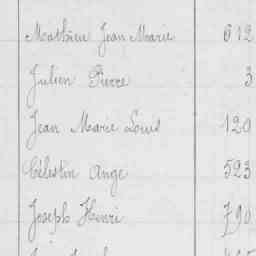 Mathieu Jean Marie 612
Julien Pierre 3
Jean Marie Louis 120
Célestin Ange 523
Joseph Henri 790